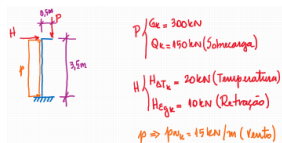 0,5m
P
H
P
3,5m
P { Gk = 300kN
Qk = 150kN (Sobrecarga)
H { HΔTk = 20kN (Temperatura)
Hεgk = 10kN (Retração)
p => pwk = 15kN/m (Vento)